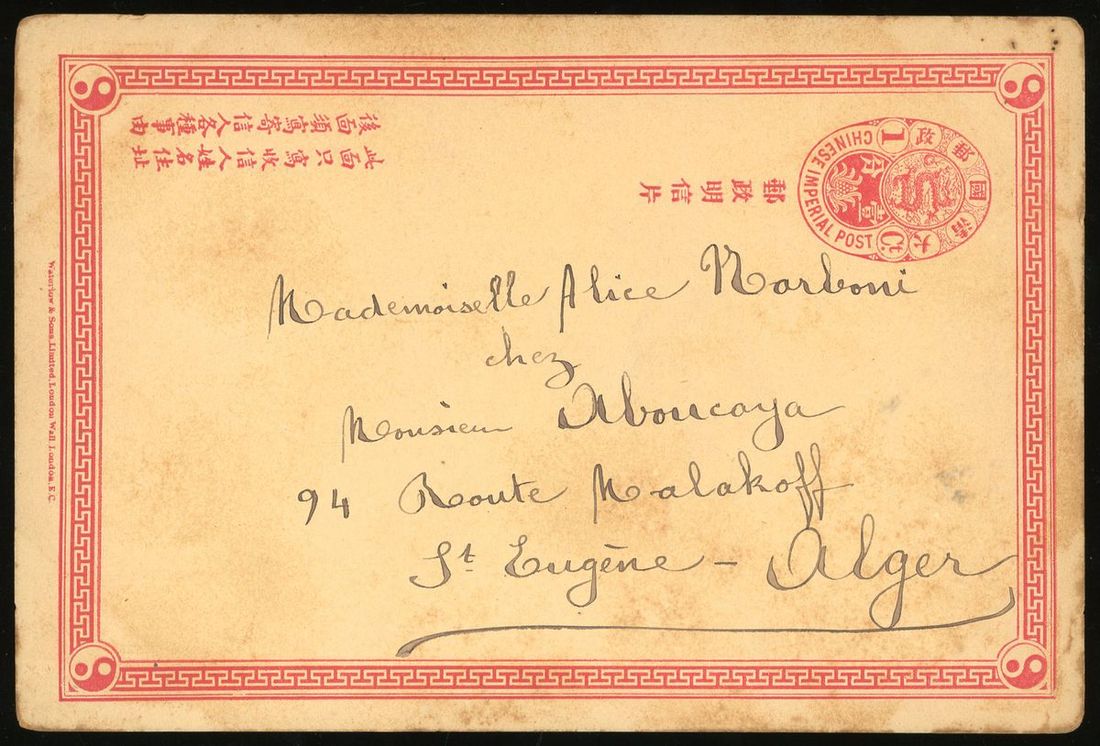 大清國郵政
CHINESE IMPERIAL POST
1 Ct.
壹分
郵政明信片
此面只寫收信人姓名住址
後面須寫寄信人各種事由
Mademoiselle Alice Narboni
chez
Monsieur Aboucaya
94 Route Malakoff
St Eugène - Alger
Waterlow & Sons Limited, London Wall, London, E.C.